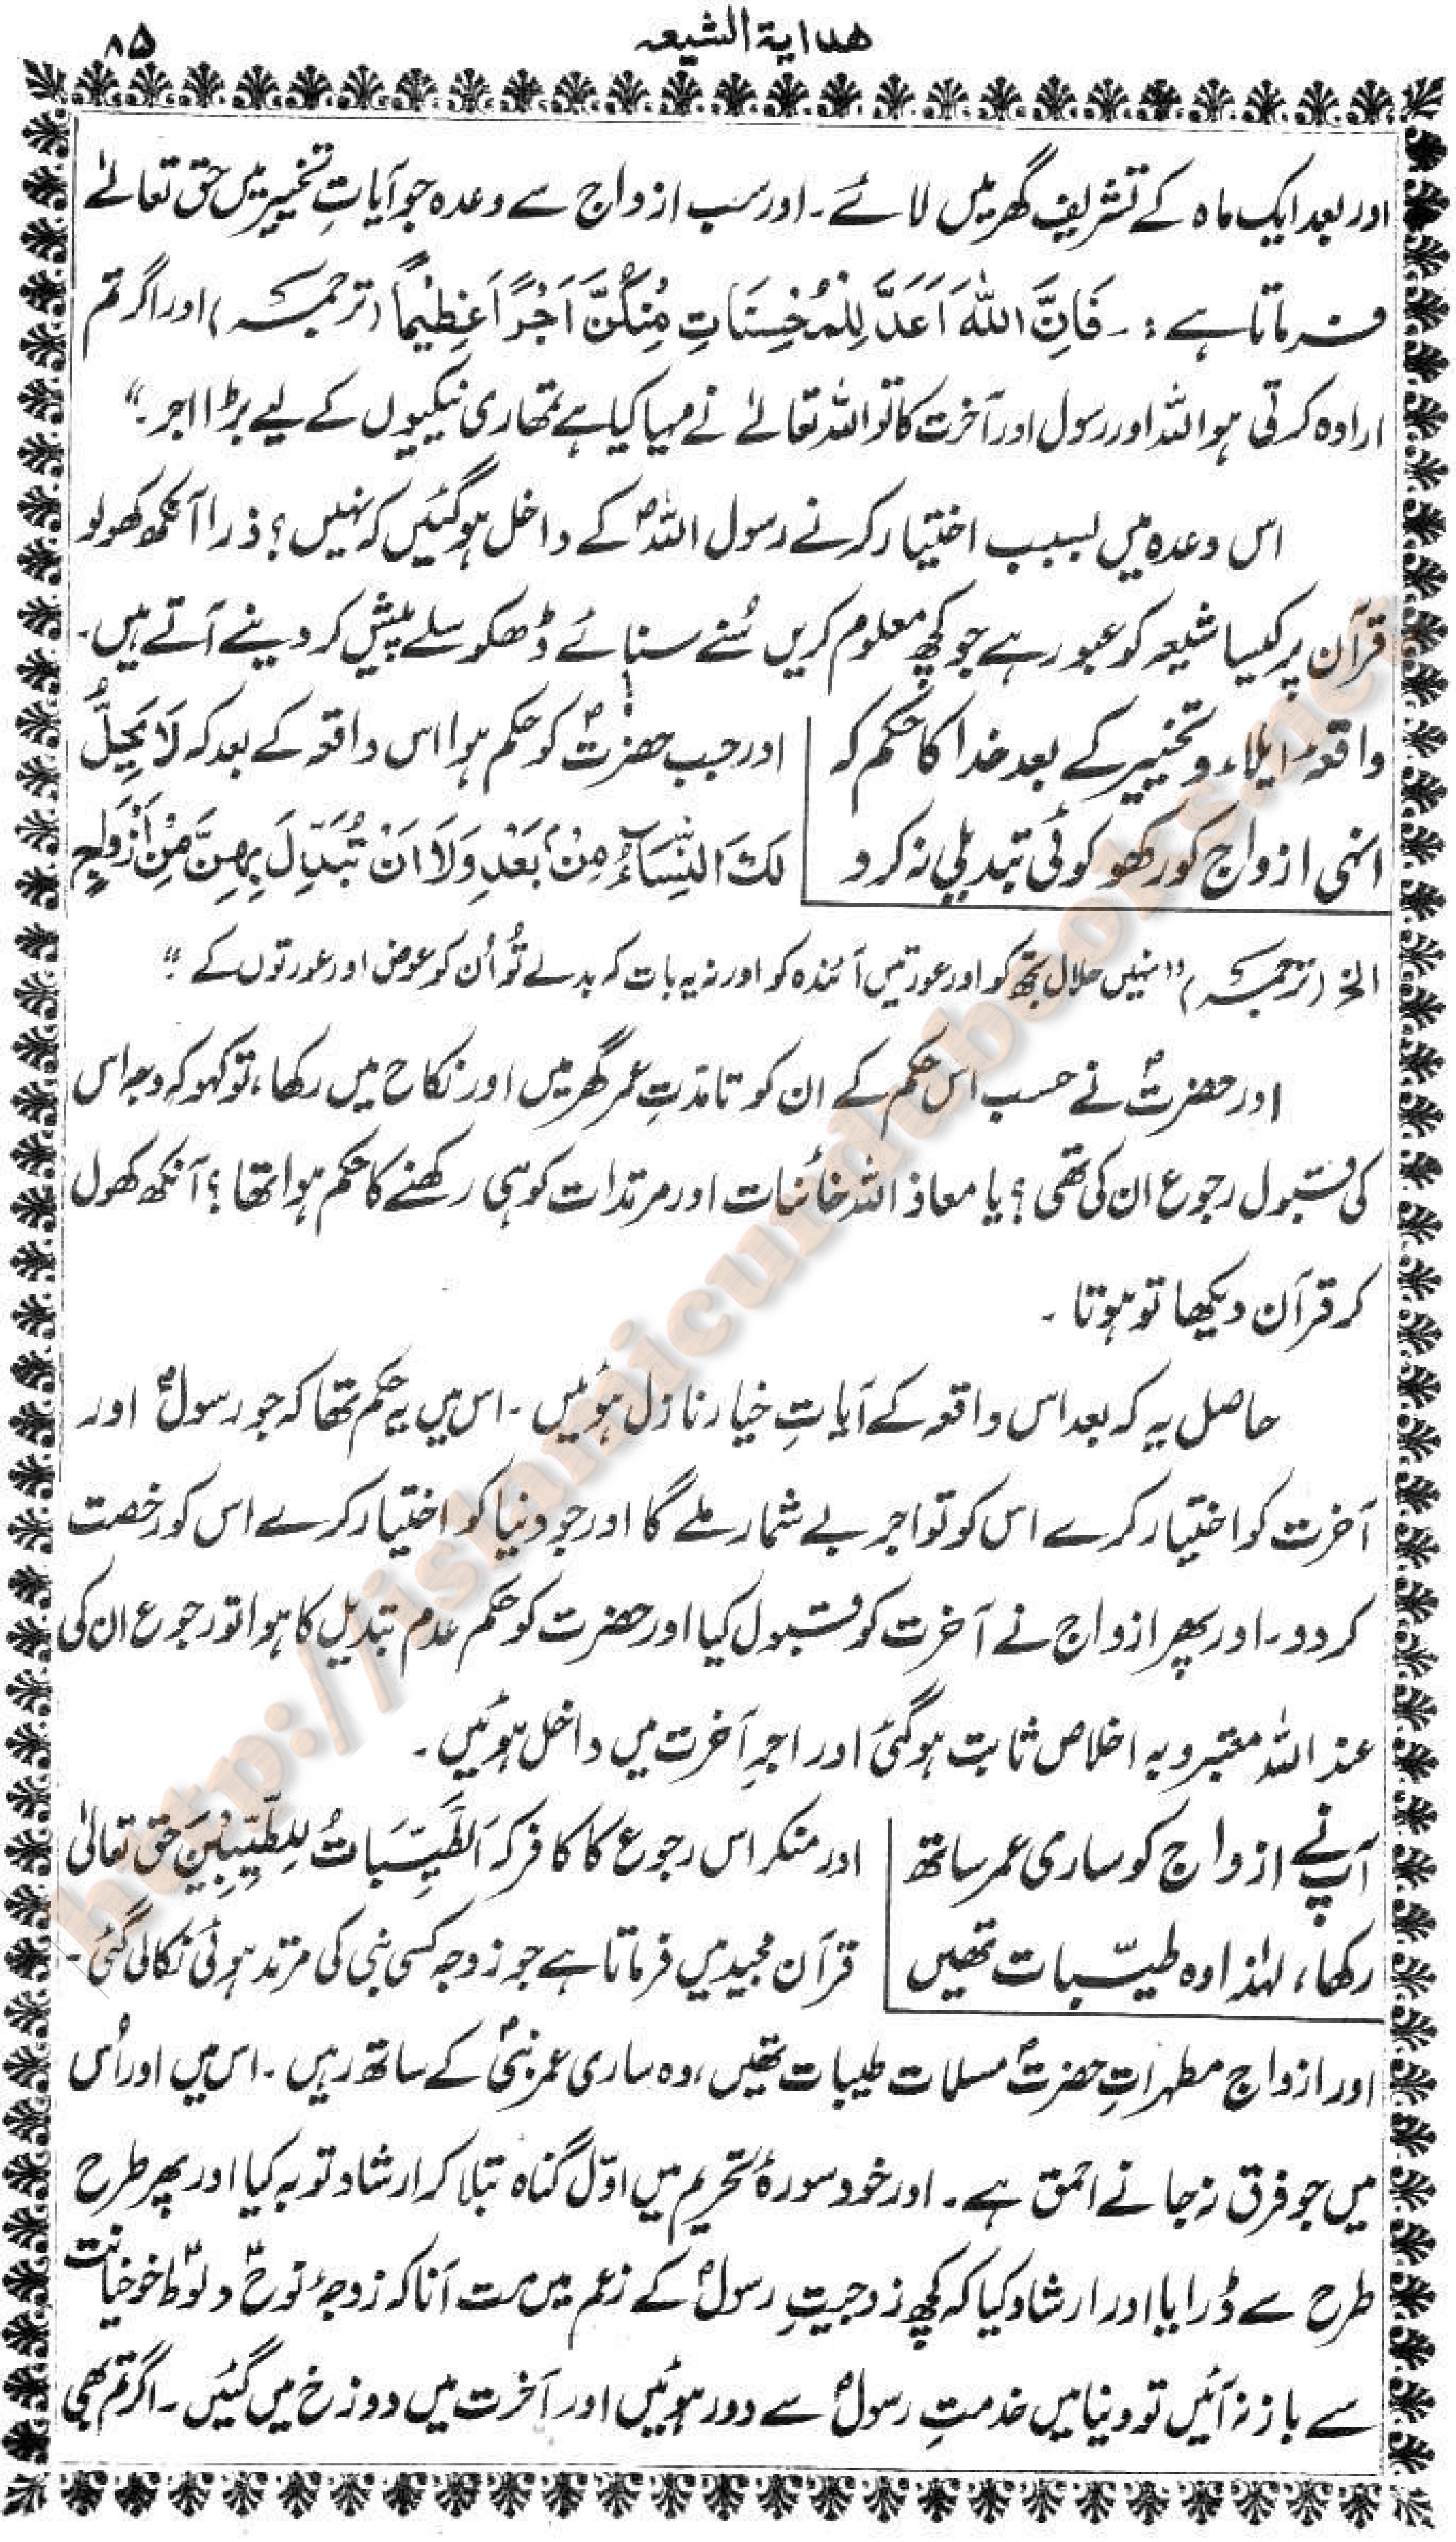 هدایۃ الشیعہ
۸۵
اور بعد ایک ماہ کے تشریف گھر میں لائے۔ اور سب ازواج سے وعدہ جو آیاتِ تخییر میں حق تعالےٰ
فرماتا ہے :۔ فَاِنَّ اللّٰهَ اَعَدَّ لِلْمُحْسِنَاتِ مِنْكُنَّ اَجْرًا عَظِیْماً (ترجمہ) اور اگر تم
ارادہ کرتی ہو اللہ اور رسول اور آخرت کا تو اللہ تعالےٰ نے مہیا کیا ہے تمھاری نیکیوں کے لیے بڑا اجر۔"
اس وعدہ میں بسبب اختیار کرنے رسول اللہؐ کے داخل ہوگئیں کہ نہیں؟ ذرا آنکھ کھولو
قرآن پر کیسا شیعہ کو عبور ہے جو کچھ معلوم کریں سُنے سنائے ڈھکوسلے پیش کر دینے آتے ہیں۔
واقعۂ ایلاء و تخییر کے بعد خدا کا حکم کہ
انہی ازواج کو رکھو کوئی تبدیلی نہ کرو
اور جب حضرتؐ کو حکم ہوا اس واقعہ کے بعد کہ لَا یَحِلُّ
لَكَ النِّسَآءُ مِنْۢ بَعْدِ وَلَا اَنْ تُبَدِّلَ بِهِنَّ مِنْ اَزْوَاجٍ
الخ (ترجمہ) "نہیں حلال تجھ کو اور عورتیں آئندہ کو اور نہ یہ بات کہ بدلے تُو اُن کو عوض اور عورتوں کے"
اور حضرتؐ نے حسب اس حکم کے ان کو تامدتِ عمر گھر میں اور نکاح میں رکھا، تو کہو کہ وجہ اس
کی قبول رجوع ان کی تھی؟ یا معاذ اللہ خائنات اور مرتدات کو ہی رکھنے کا حکم ہوا تھا؟ آنکھ کھول
کر قرآن دیکھا تو ہوتا۔
حاصل یہ کہ بعد اس واقعہ کے آیاتِ خیار نازل ہوئیں۔ اس میں یہ حکم تھا کہ جو رسولؐ اور
آخرت کو اختیار کرے اس کو تو اجر بے شمار ملے گا اور جو دنیا کو اختیار کرے اس کو رخصت
کر دو۔ اور پھر ازواج نے آخرت کو قبول کیا اور حضرت کو حکم عدم تبدیل کا ہوا تو رجوع ان کی
عند اللہ معتبر و بہ اخلاص ثابت ہوگئی اور اجرِ آخرت میں داخل ہوئیں۔
آپؐ نے ازواج کو ساری عمر ساتھ
رکھا، لہٰذا وہ طیّبات تھیں
اور منکر اس رجوع کا کافر کہ اَلطَّیِّبَاتُ لِلطَّیِّبِیْنَ حق تعالیٰ
قرآن مجید میں فرماتا ہے جو زوجہ کسی نبی کی مرتد ہوئی نکالی گئی۔
اور ازواج مطہراتِ حضرتؐ مسلمات طیبات تھیں، وہ ساری عمر نبیؐ کے ساتھ رہیں۔ اس میں اور اُس
میں جو فرق نہ جانے احمق ہے۔ اور خود سورۂ تحریم میں اوّل گناہ بتلا کر ارشاد توبہ کیا اور پھر طرح
طرح سے ڈرایا اور ارشاد کیا کہ کچھ زوجیتِ رسولؐ کے زعم میں مت آنا کہ زوجۂ نوحؑ و لوطؑ خو خیانت
سے باز نہ آئیں تو دنیا میں خدمتِ رسولؐ سے دور ہوئیں اور آخرت میں دوزخ میں گئیں۔ اگر تم بھی
http://islamicurdubooks.net